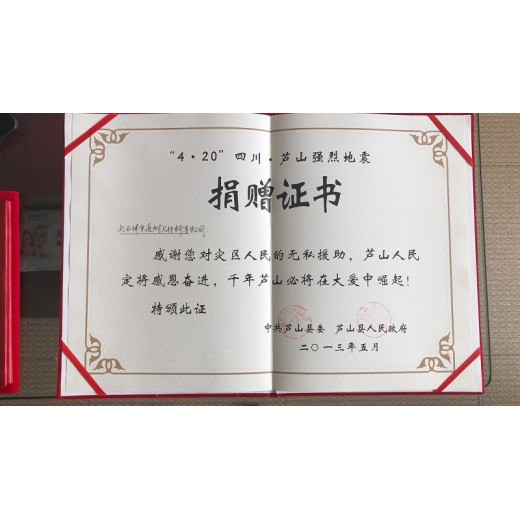 “4·20”四川·芦山强烈地震
捐赠证书
大石桥市通成耐火材料有限公司
感谢您对灾区人民的无私援助，芦山人民
定将感恩奋进，千年芦山必将在大爱中崛起！
特颁此证
中共芦山县委 芦山县人民政府
二〇一三年五月